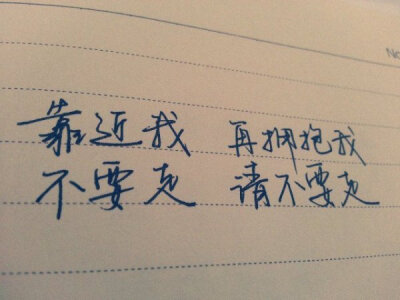 No
靠近我 再拥抱我
不要走 请不要走